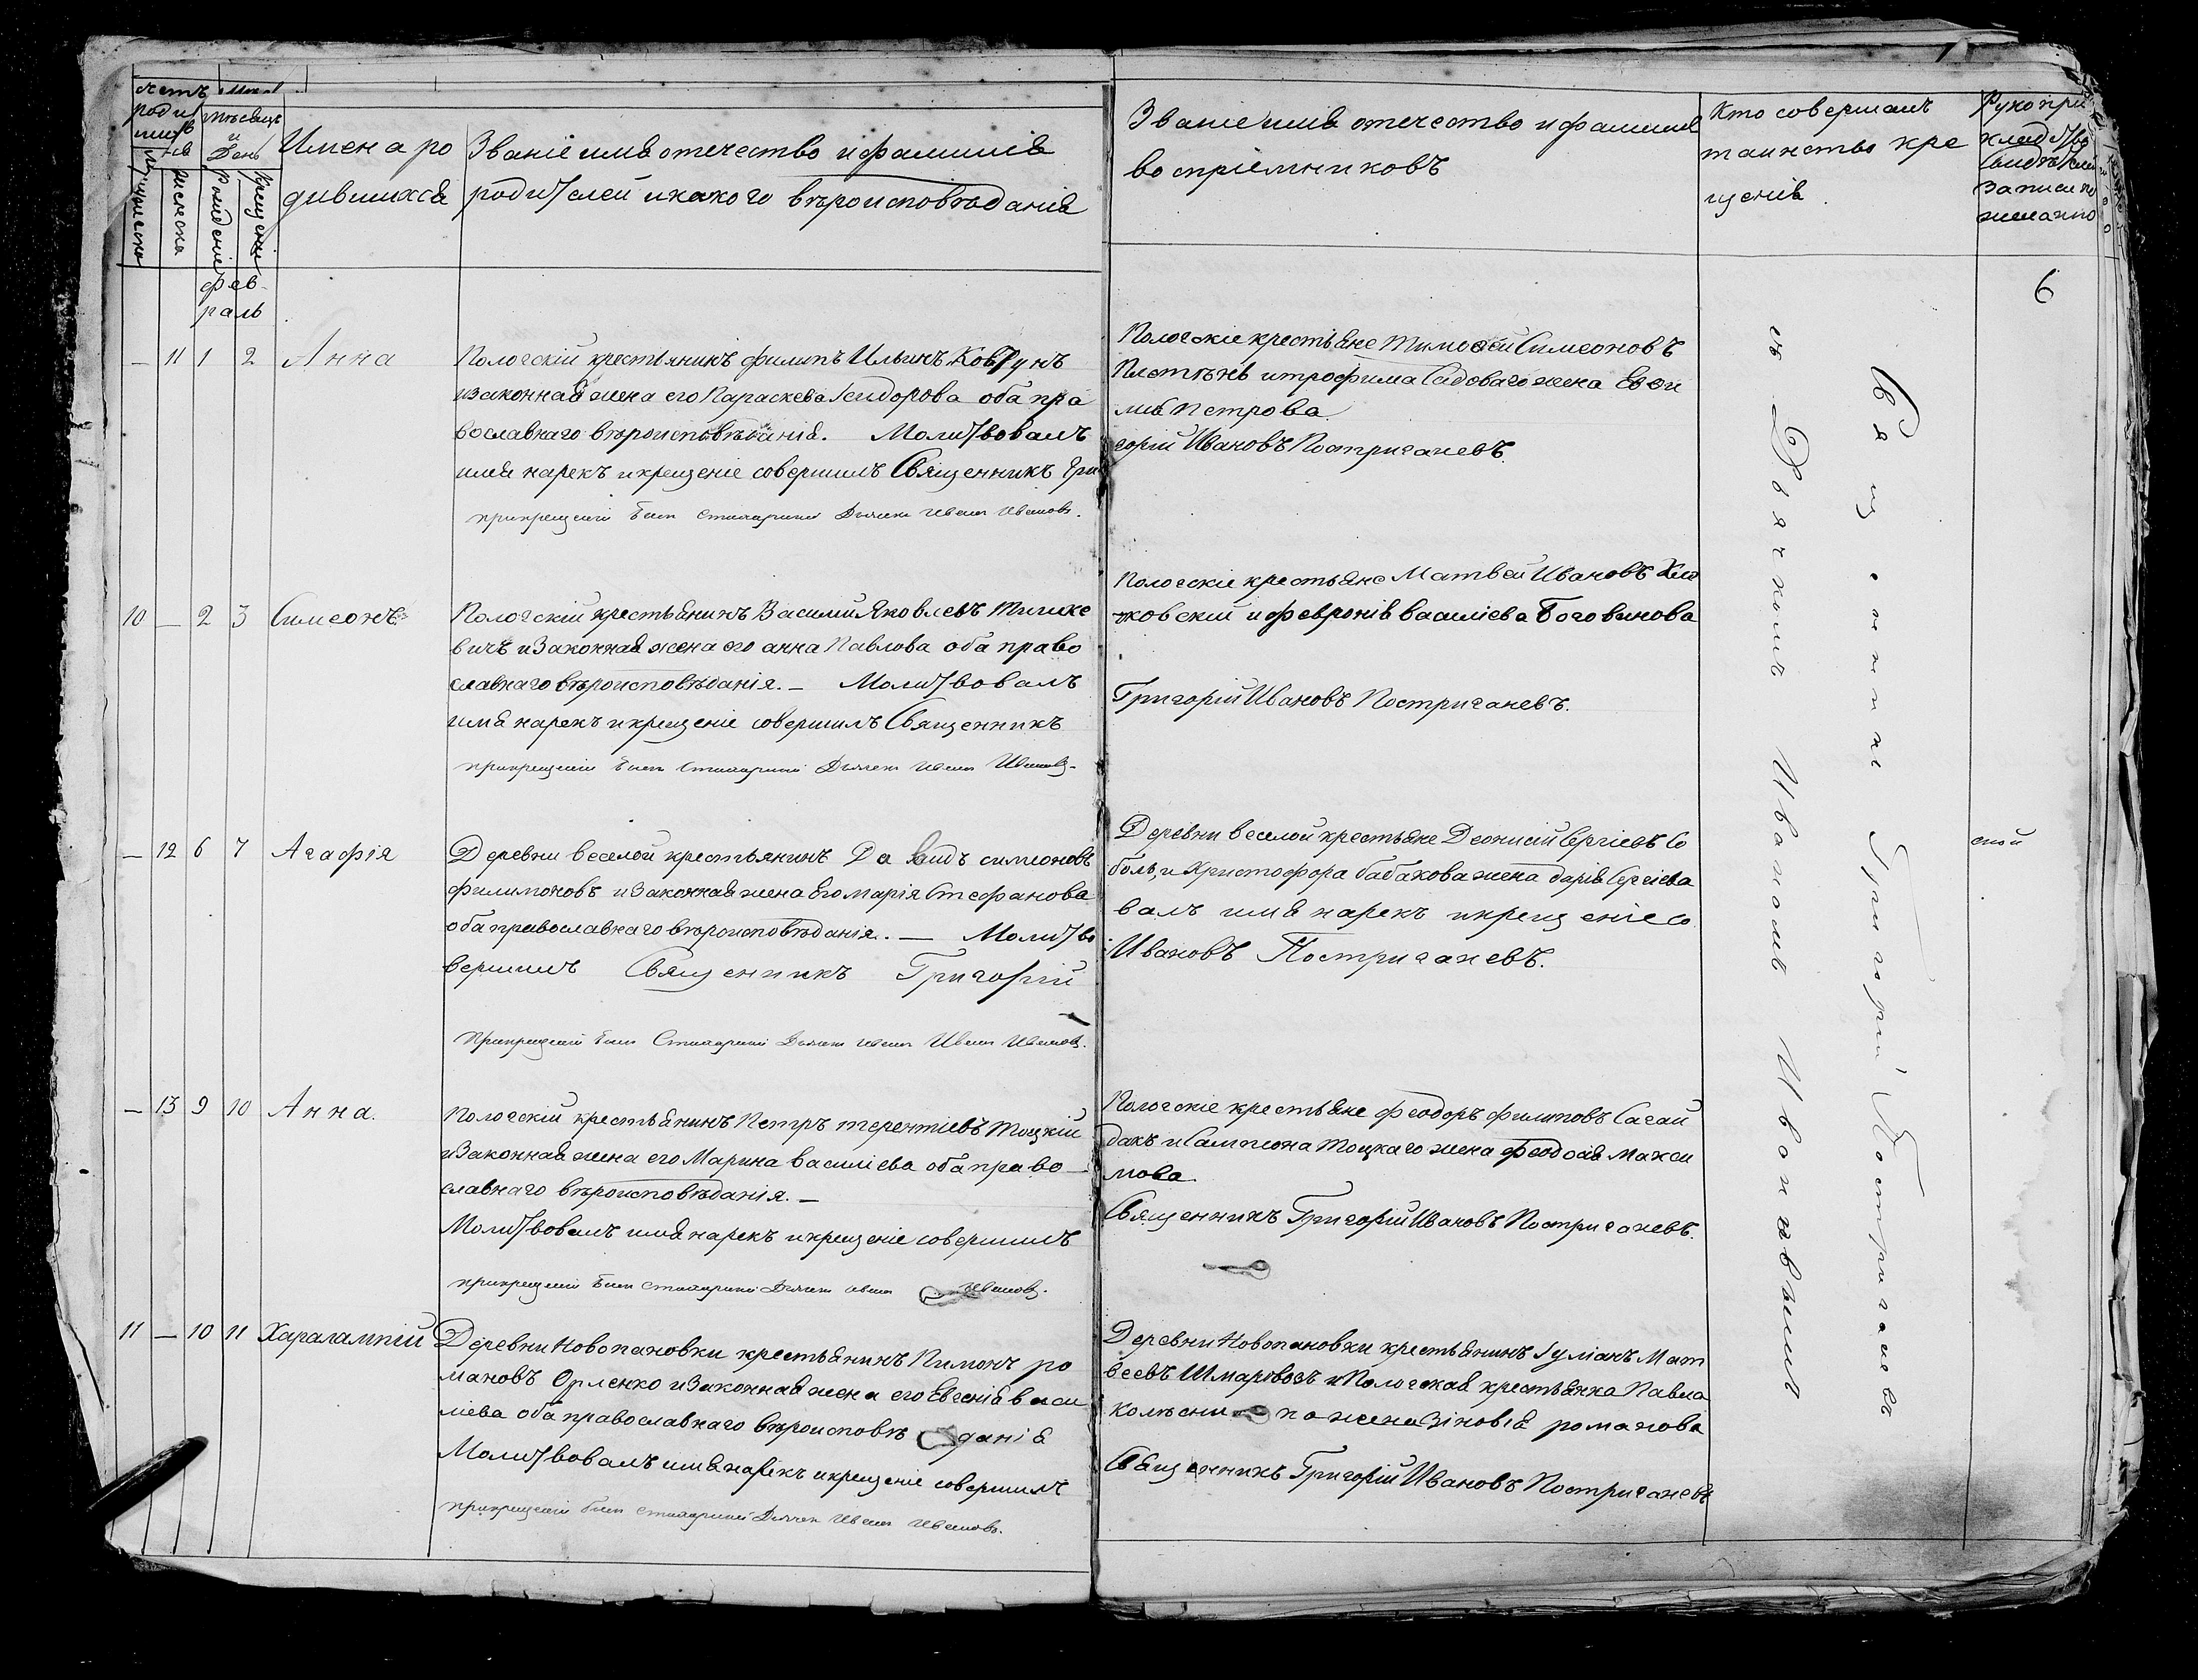 Мѣсяцъ
и
День
Имена ро
дившихся
Званіе имя отечество и фамилія
родителей и какого вѣроисповѣданія
Званіе имя отечество и фамилія
воспріемниковъ
Кто совершалъ
таинство кре
щенія
Рукопри
кладство
свидѣтелей
записи по
желанію
мужеска
женска
Рожденіе
Крещеніе
Фев-
раль
6
— 11 1 2 Анна
Пологскій крестьянинъ Филипъ Ильинъ Ковтунъ
и законная жена его Параскева Исидорова оба пра
вославнаго вѣроисповѣданія. Молитвовалъ
имя нарекъ и крещеніе совершилъ Священникъ Гри
при крещеніи былъ Стихарный Дьячекъ Иванъ Ивановъ.
Пологскіе крестьяне Тимоѳей Симеоновъ
Плетѣнь и Трофима Садоваго жена Евѳи
мія Петрова
горій Ивановъ Постригачевъ.
10 — 2 3 Симеонъ
Пологскій крестьянинъ Василий Яковлевъ Тишке
вичъ и Законная жена его Анна Павлова оба право
славнаго вѣроисповѣданія. — Молитвовалъ
имя нарекъ и крещеніе совершилъ Священникъ
при крещеніи былъ Стихарный Дьячекъ Иванъ Ивановъ.
Пологскіе крестьяне Матвей Ивановъ
и Февронія Василіева Боговинова
Григорій Ивановъ Постригачевъ.
— 12 6 7 Агафія
Деревни Веселой крестьянинъ Давидъ Симеоновъ
Филимоновъ и Законная жена Его Марія Стефанова
оба православнаго вѣроисповѣданія. — Молитво
вершилъ Священникъ Григорій
При крещеніи былъ Стихарный Дьячекъ Иванъ Ивановъ.
Деревни Веселой крестьяне Деонисій Сергіевъ Со
боль, и Христофора Бабакова жена Дарія Сергіева
валъ имя нарекъ и крещеніе со
Ивановъ Постригачевъ.
— 13 9 10 Анна.
Пологскій крестьянинъ Петръ Терентіевъ Тоцкій
и Законная жена его Марина Василіева оба право
славнаго вѣроисповѣданія. —
Молитвовалъ имя нарекъ и крещеніе совершилъ
при крещеніи былъ Стихарный Дьячекъ Иванъ Ивановъ.
Пологскіе крестьяне Феодоръ Филиповъ Сагай
дакъ и Сампсона Тоцкаго жена Феодосія Макси
мова
Священникъ Григорій Ивановъ Постригачевъ.
11 — 10 11 Харалампій
Деревни Новопановки крестьянинъ Пимонъ Ро
мановъ Орленко и Законная жена его Евгенія Васи
ліева оба православнаго вѣроисповѣданія
Молитвовалъ имя нарекъ и крещеніе совершилъ
при крещеніи былъ стихарный Дьячекъ Иванъ Ивановъ.
Деревни Новопановки крестьянинъ Іуліанъ Мат
веевъ Шмаровозъ и Пологская крестьянка Павла
жена Зіновія Романова
Священникъ Григорій Ивановъ Постригачевъ
Священникъ Григорій Постригачевъ
съ Дьячкомъ Иваномъ